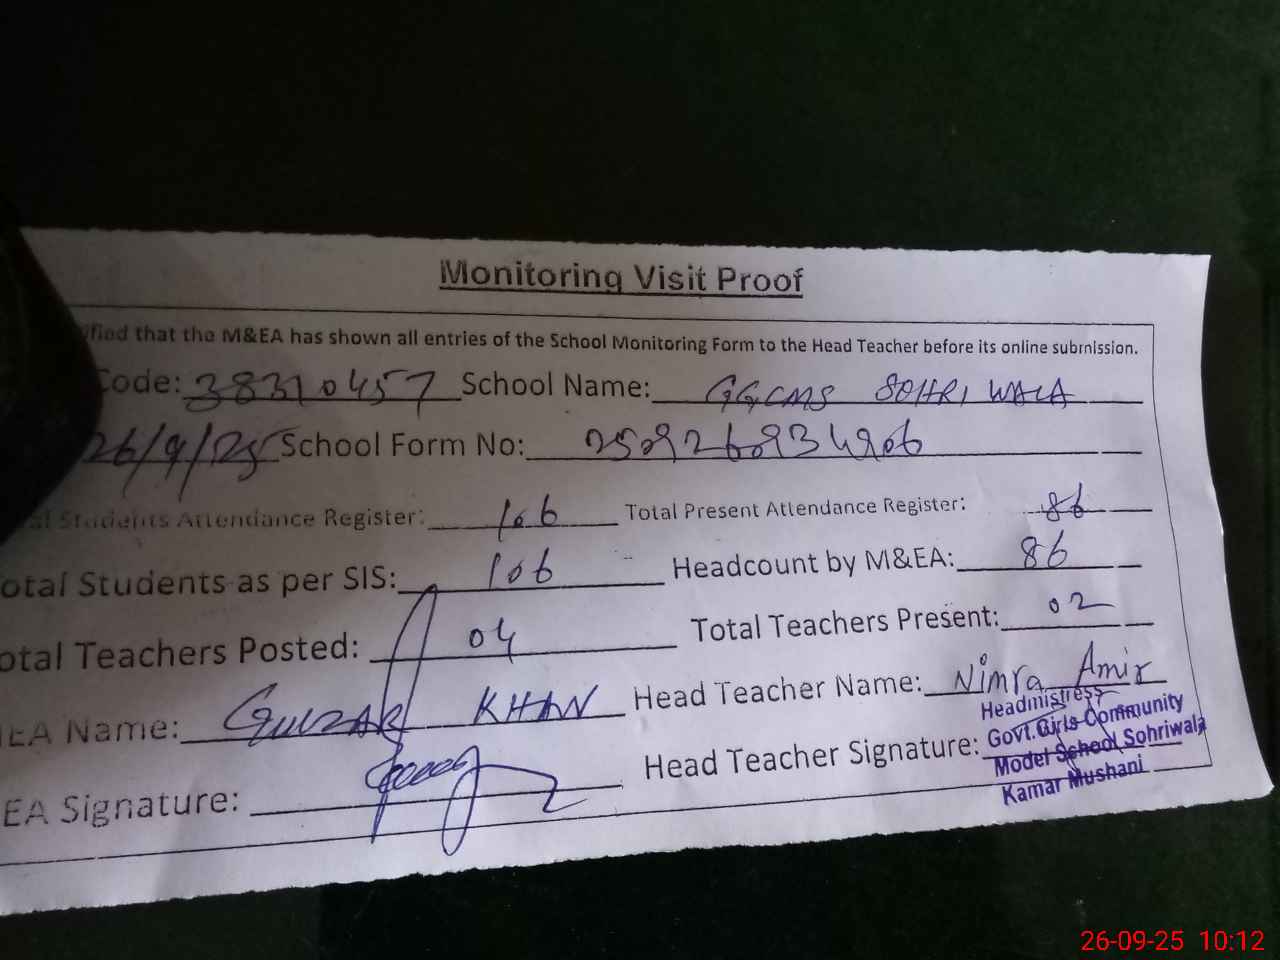 Monitoring Visit Proof
ified that the M&EA has shown all entries of the School Monitoring Form to the Head Teacher before its online submission.
Code: 38310457 School Name: GGCMS SOHRI WALA
26/9/25 School Form No:
al Students Attendance Register: 106 Total Present Attendance Register: 86
otal Students as per SIS: 106 Headcount by M&EA: 86
otal Teachers Posted: 04 Total Teachers Present: 02
EA Name: GULZAR KHAN Head Teacher Name: Nimra Amir
EA Signature: Head Teacher Signature:
Headmistress
Govt.Girls Community
Model School Sohriwala
Kamar Mushani
26-09-25 10:12